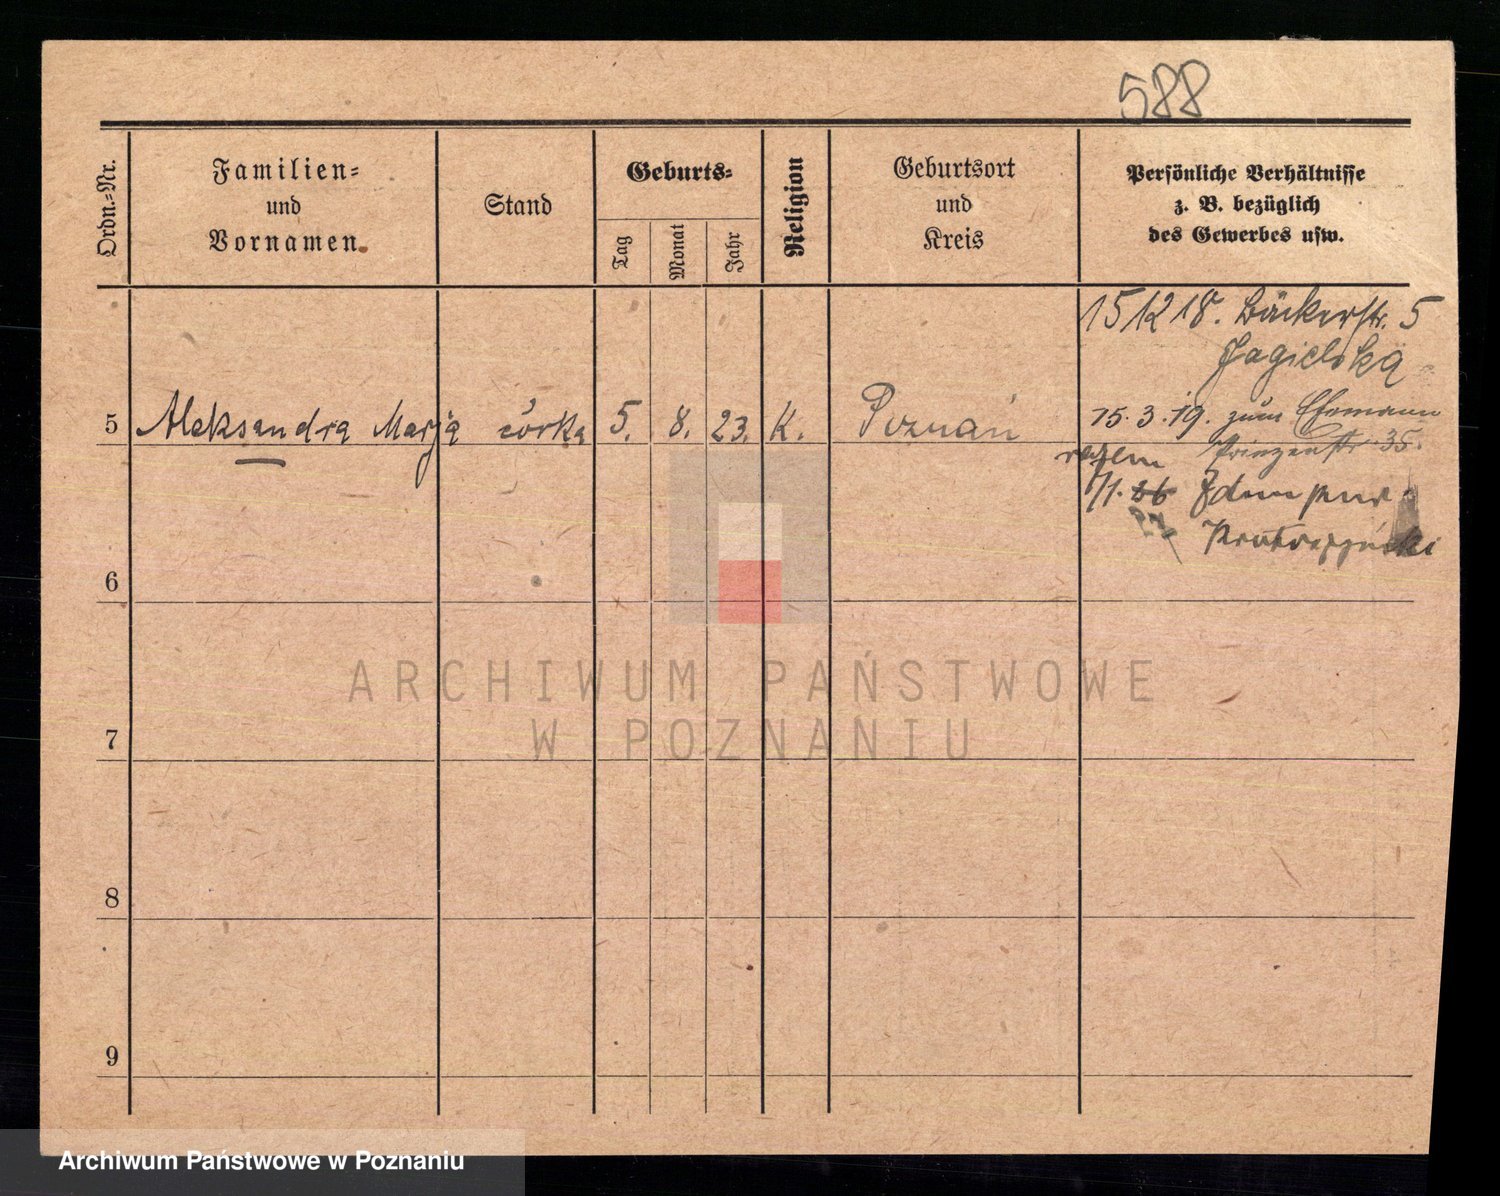 588
Ordn.-Nr.
Familien-
und
Vornamen.
Stand
Geburts-
Tag
Monat
Jahr
Religion
Geburtsort
und
Kreis
Persönliche Verhältnisse
z. B. bezüglich
des Gewerbes usw.
15 12 18. Bäckerstr. 5
Jagielska
5 Aleksandra Marja córka 5. 8. 23. K. Poznań
15. 3. 19. zum Ehemann
Prinzenstr. 35.
razem
6
7
8
9
ARCHIWUM PAŃSTWOWE
W POZNANIU
Archiwum Państwowe w Poznaniu